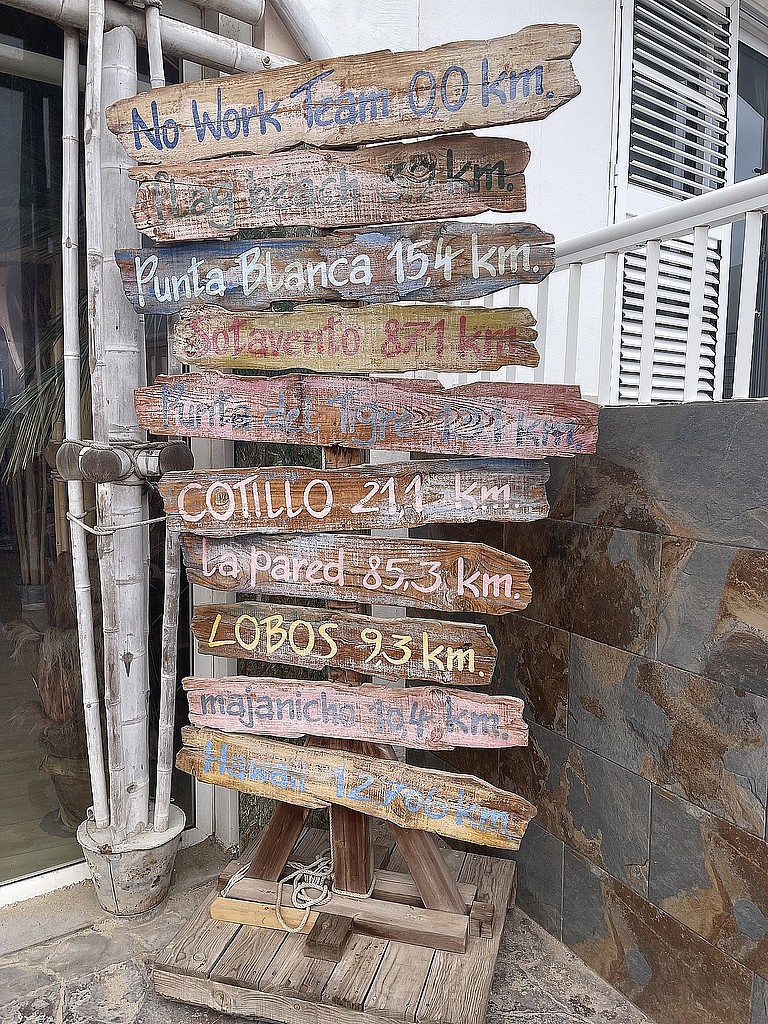 No Work Team 0,0 km.
flag beach 3,9 km.
Punta Blanca 15,4 km.
Sotavento 87,1 km.
Punta del Tigre 13,1 km.
COTILLO 21,1 km.
la pared 85,3 km.
LOBOS 9,3 km.
majanicho 10,4 km.
Hawaii 12.706 km.